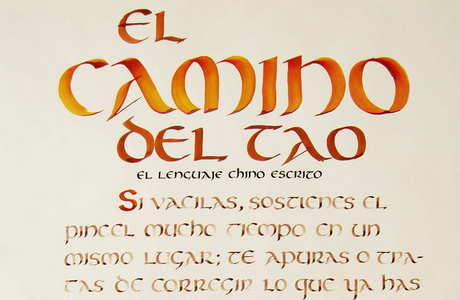 EL
CAMINO
DEL TAO
EL LENGUAJE CHINO ESCRITO
SI VACILAS, SOSTIENES EL
PINCEL MUCHO TIEMPO EN UN
MISMO LUGAR; TE APURAS O TRA-
TAS DE CORREGIR LO QUE YA HAS